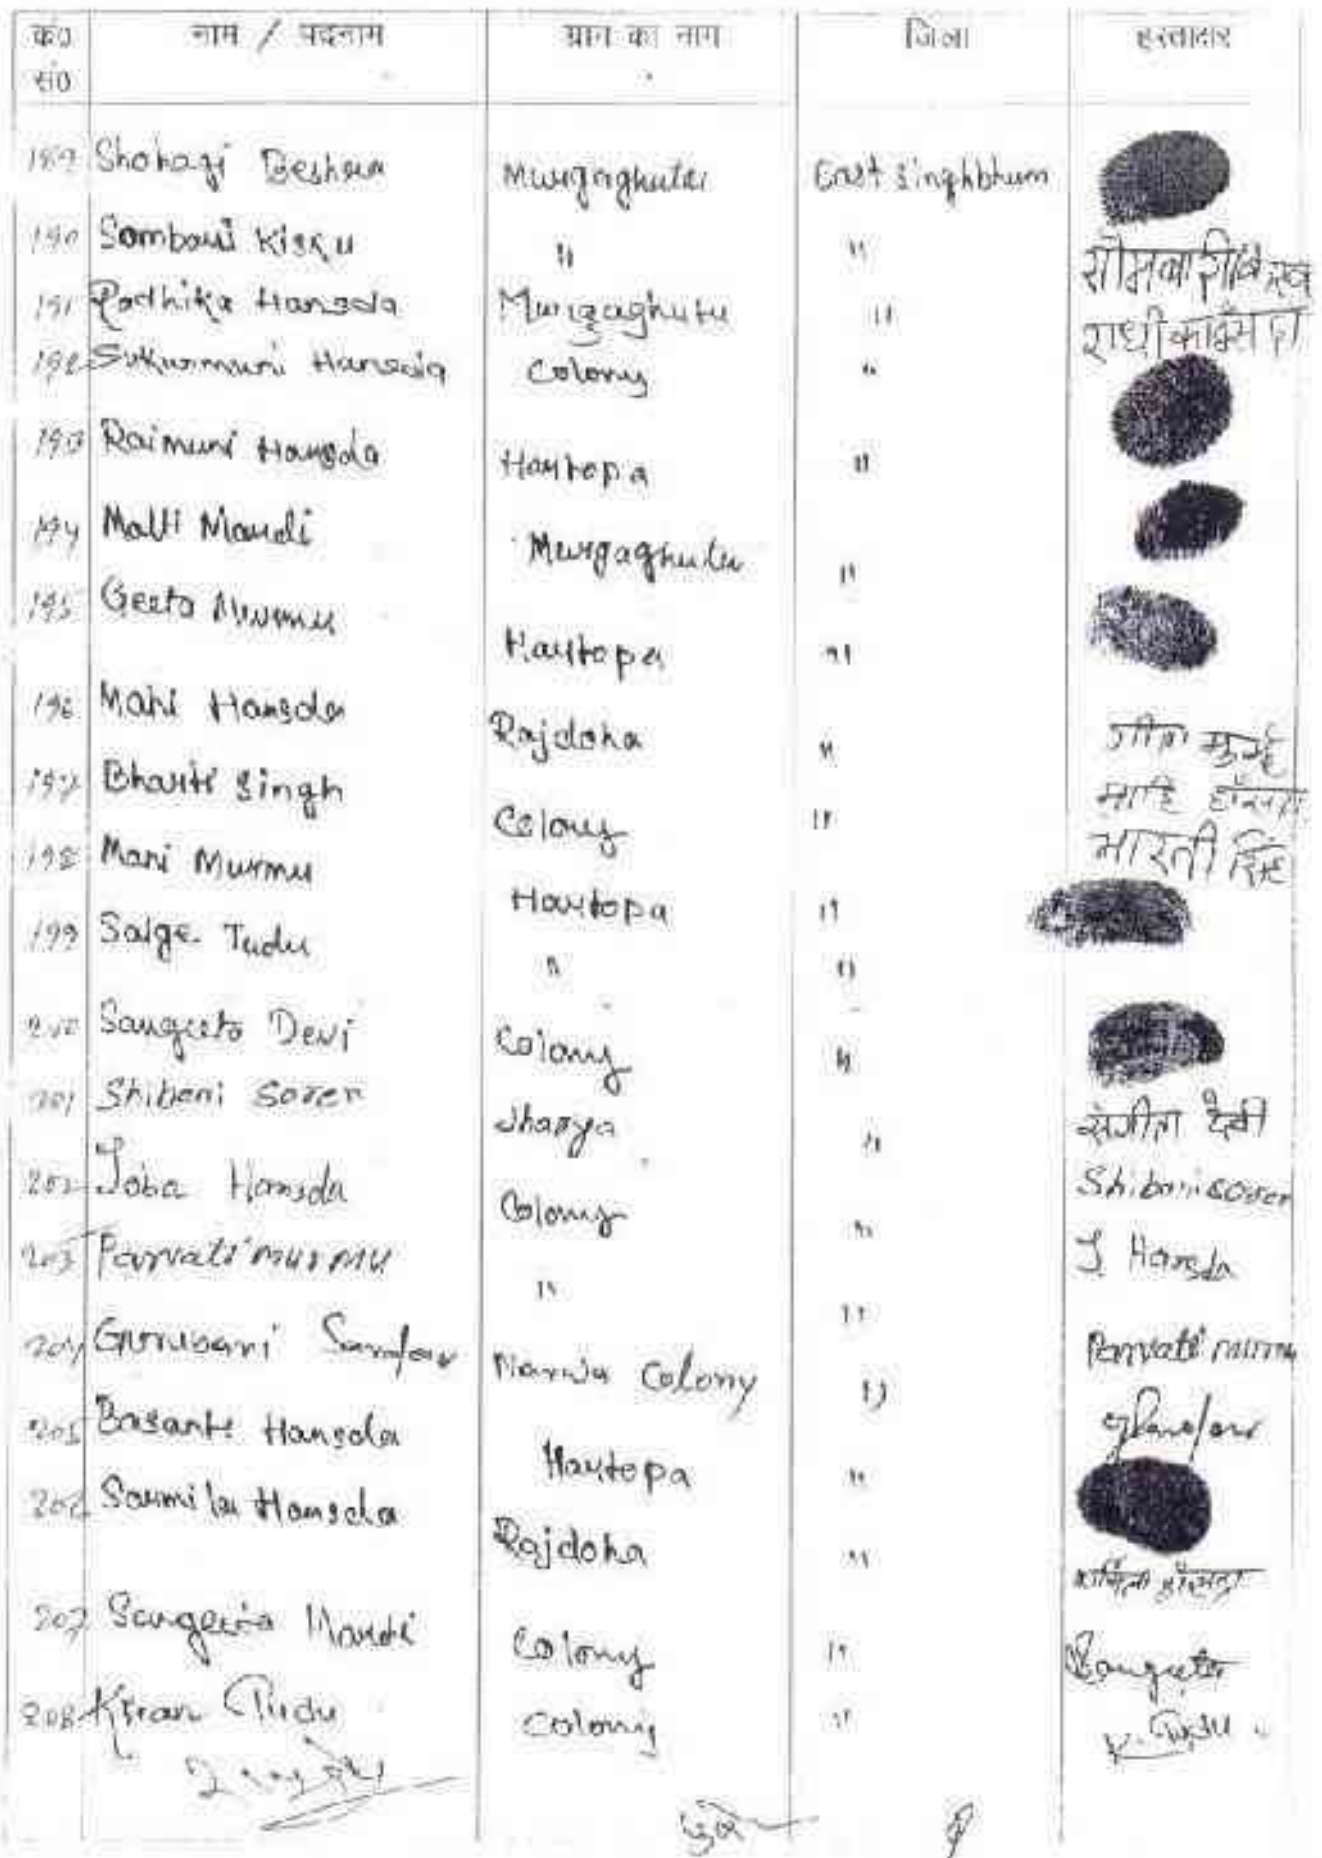 क्र० सं० नाम / पदनाम ग्राम का नाम जिला हस्ताक्षर
189 Shohagi Beshra Murgaghutu East Singhbhum
190 Sombari Kisku " "
191 Radhika Hansda Murgaghutu "
192 Sukurmuni Hansda Colony "
193 Raimuni Hansda Hartopa "
194 Malti Mardi Murgaghutu "
195 Geeta Murmu Hartopa "
196 Mahi Hansda Rajdoha " गीता मुर्मू
197 Bharti Singh Colony " माहि हाँसदा
198 Mani Murmu Hartopa " भारती सिंह
199 Salge Tudu " "
200 Sangeeta Devi Colony "
201 Shibani Soren Jharya " संगीता देवी
202 Joba Hansda Colony " Shibani soren
203 Parvati murmu " " J. Hansda
204 Gurubari Narwa Colony " Parvati murmu
205 Basanti Hansda Hartopa "
206 Sarmila Hansda Rajdoha "
207 Sangeeta Mardi Colony " Sangeeta
208 Kiran Tudu Colony " K. Tudu